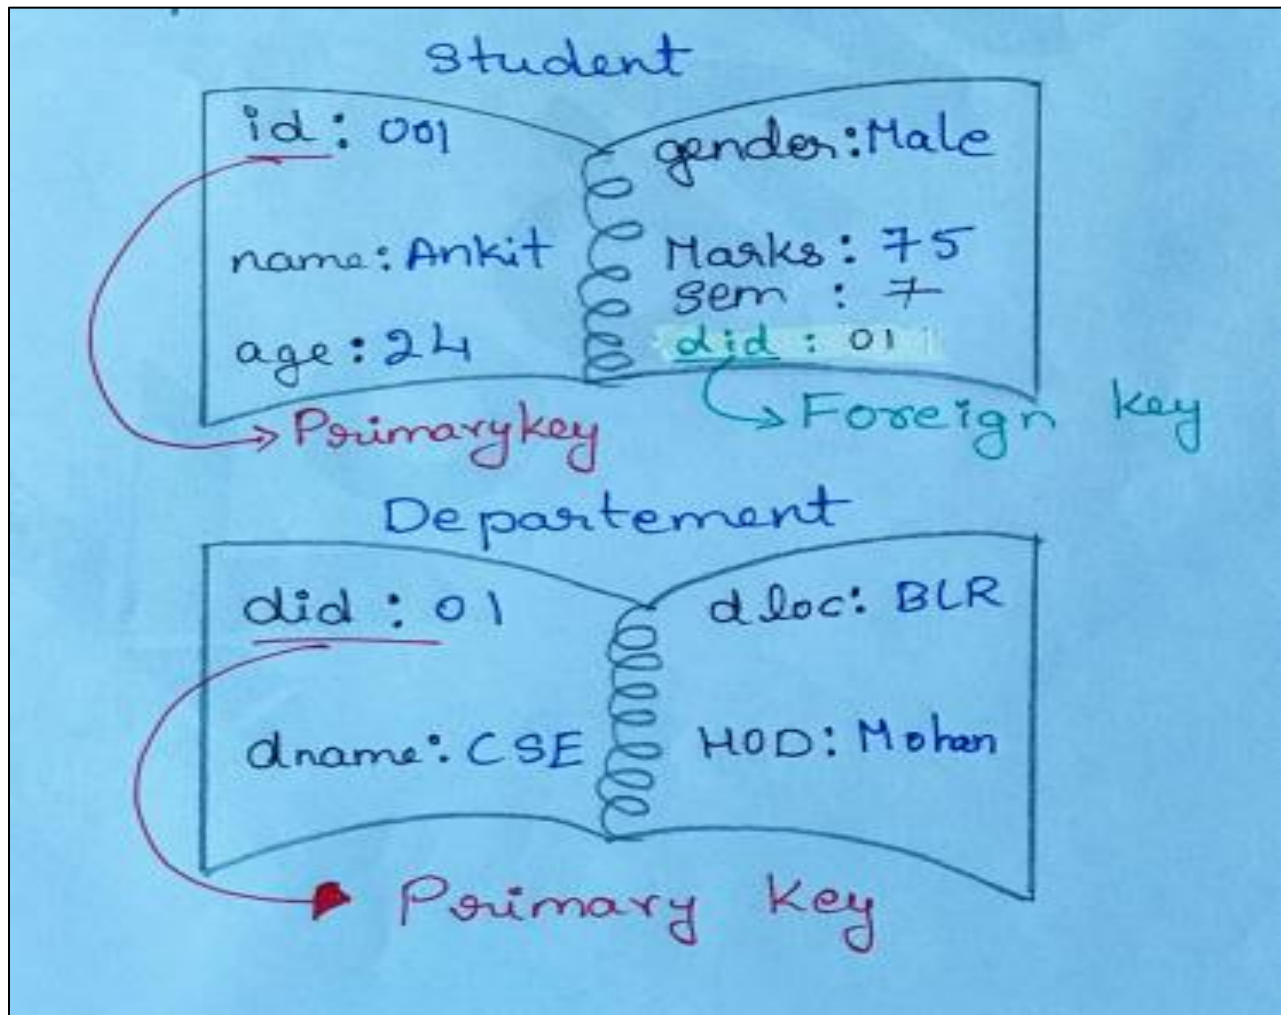 Student
id: 001
name: Ankit
age: 24
gender: Male
Marks: 75
Sem : 7
did : 01
Primary key
Foreign key
Departement
did : 01
dname: CSE
dloc: BLR
HOD: Mohan
Primary Key